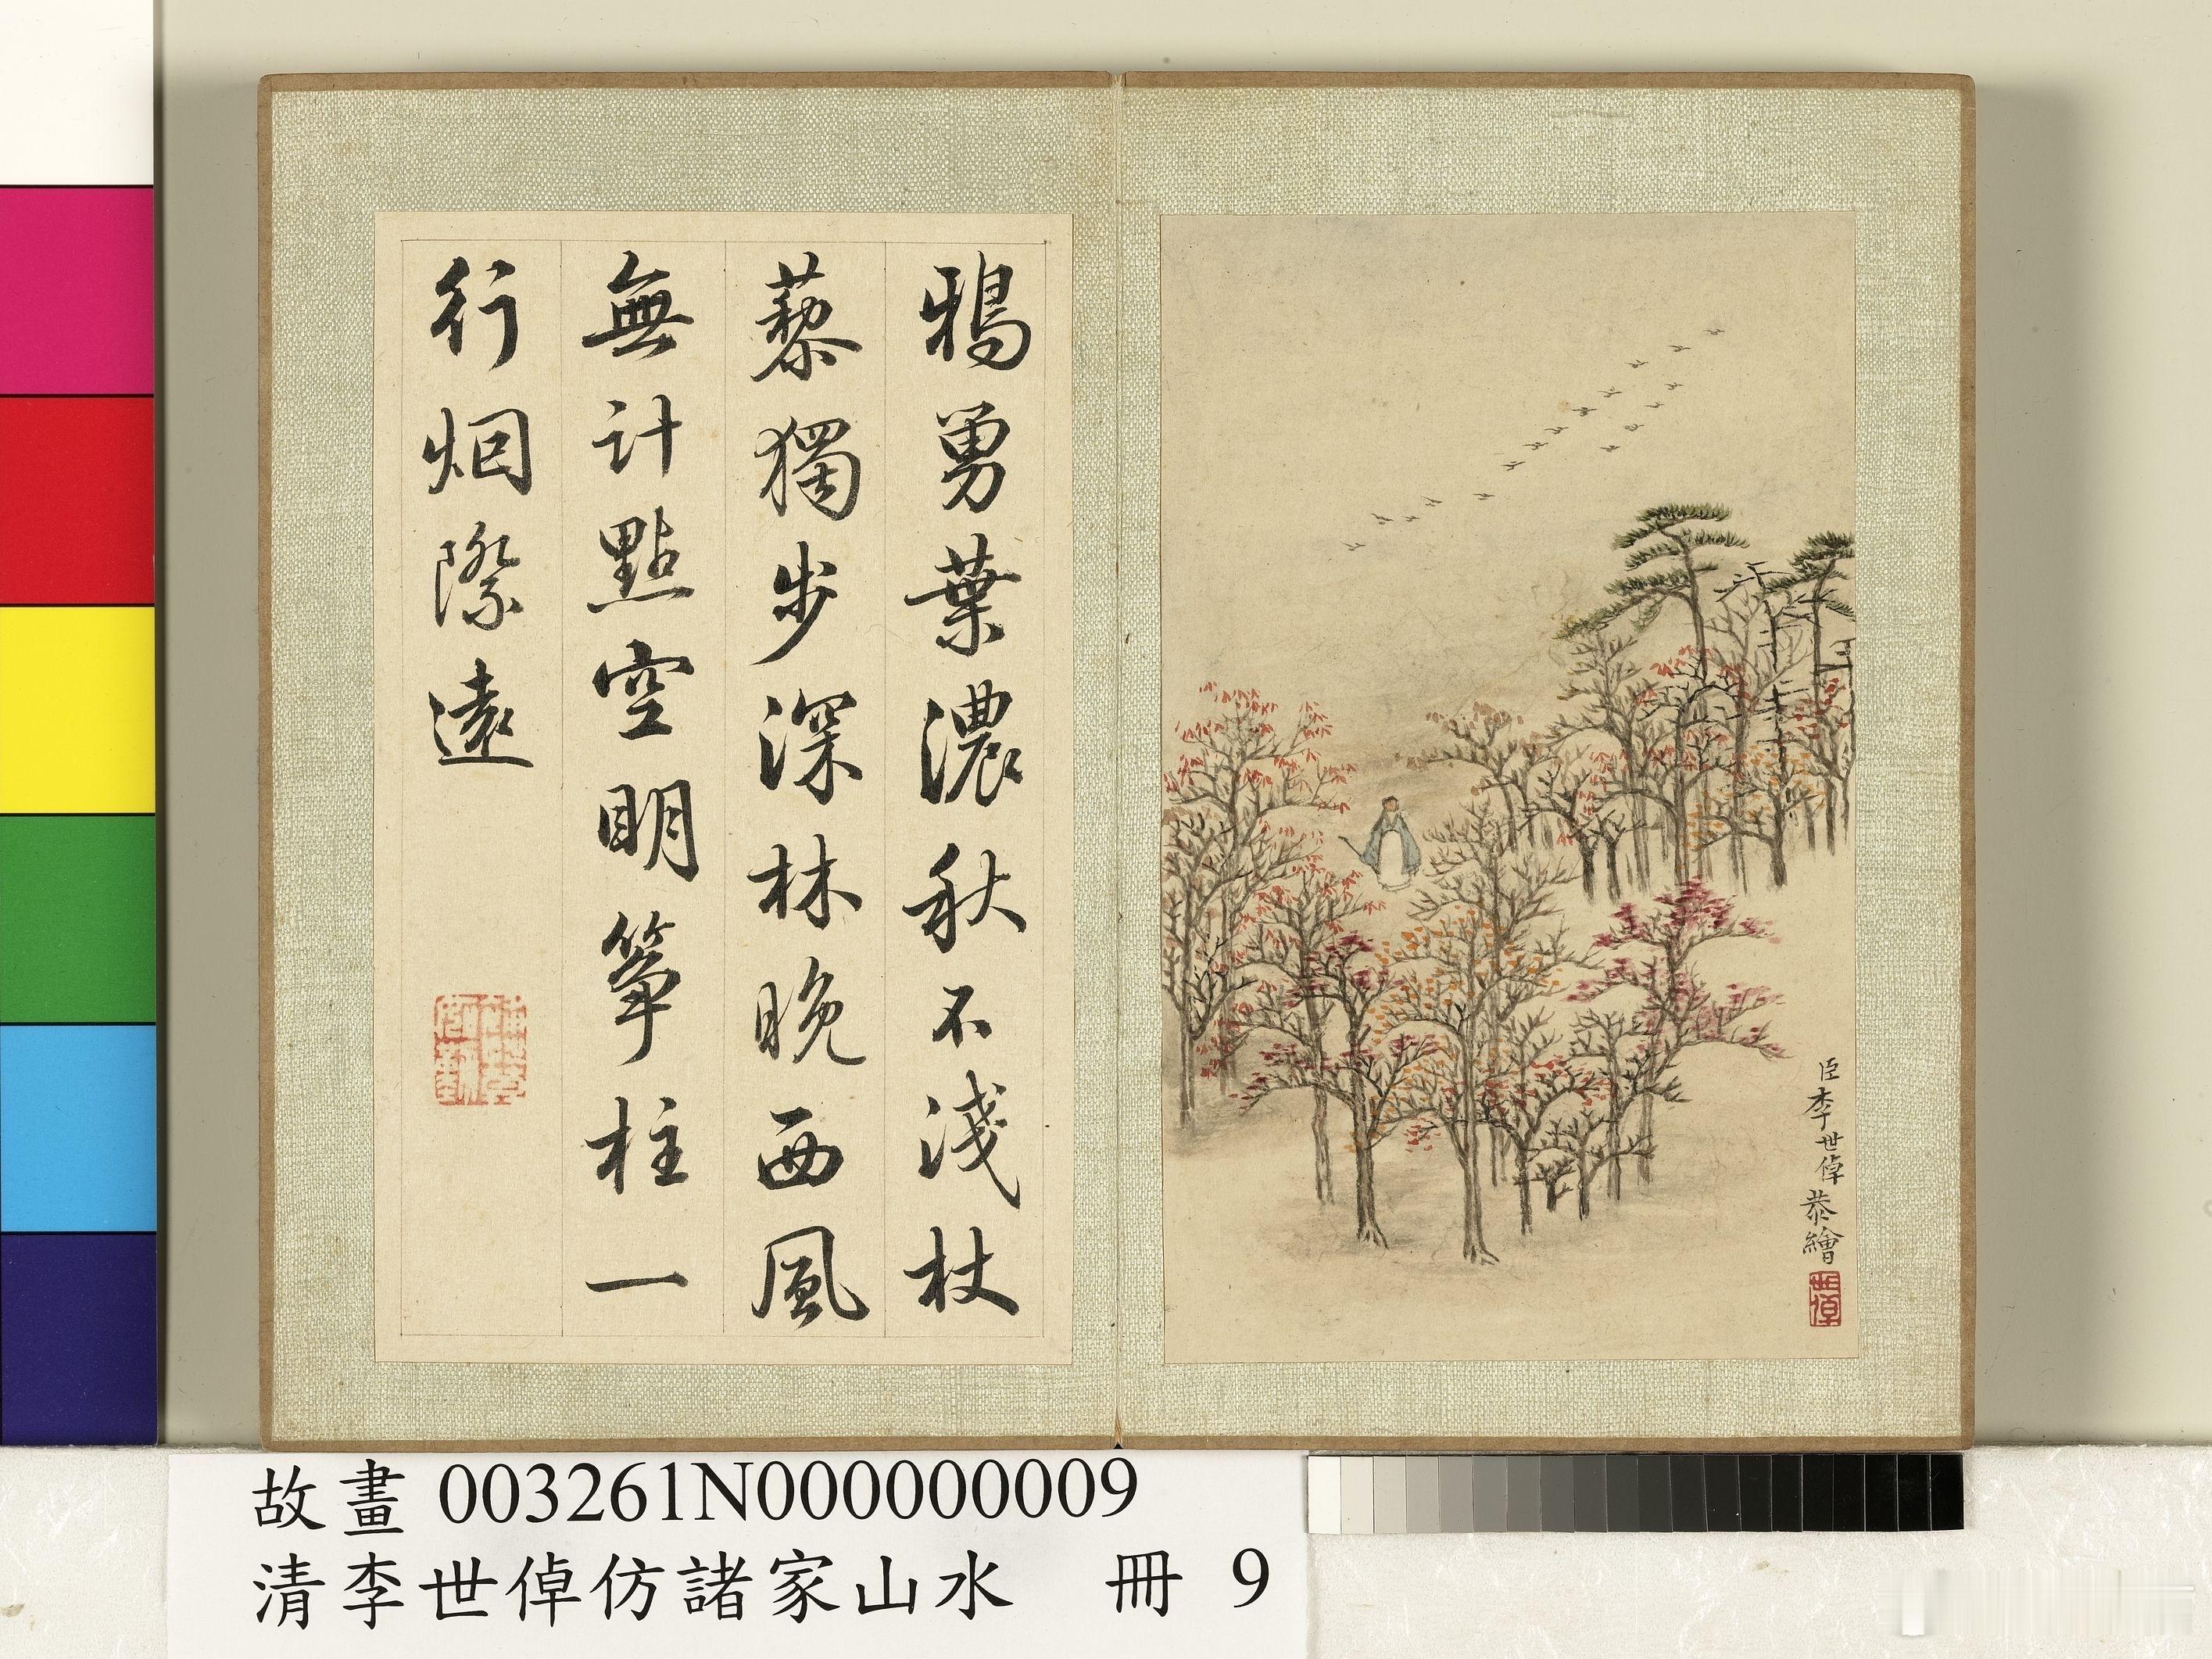 臣李世倬恭繪
世倬
鴉舅葉濃秋不淺杖
藜獨步深林晚西風
無計點空眀箏柱一
行烟際遠
故畫 003261N000000009
清李世倬仿諸家山水 冊 9